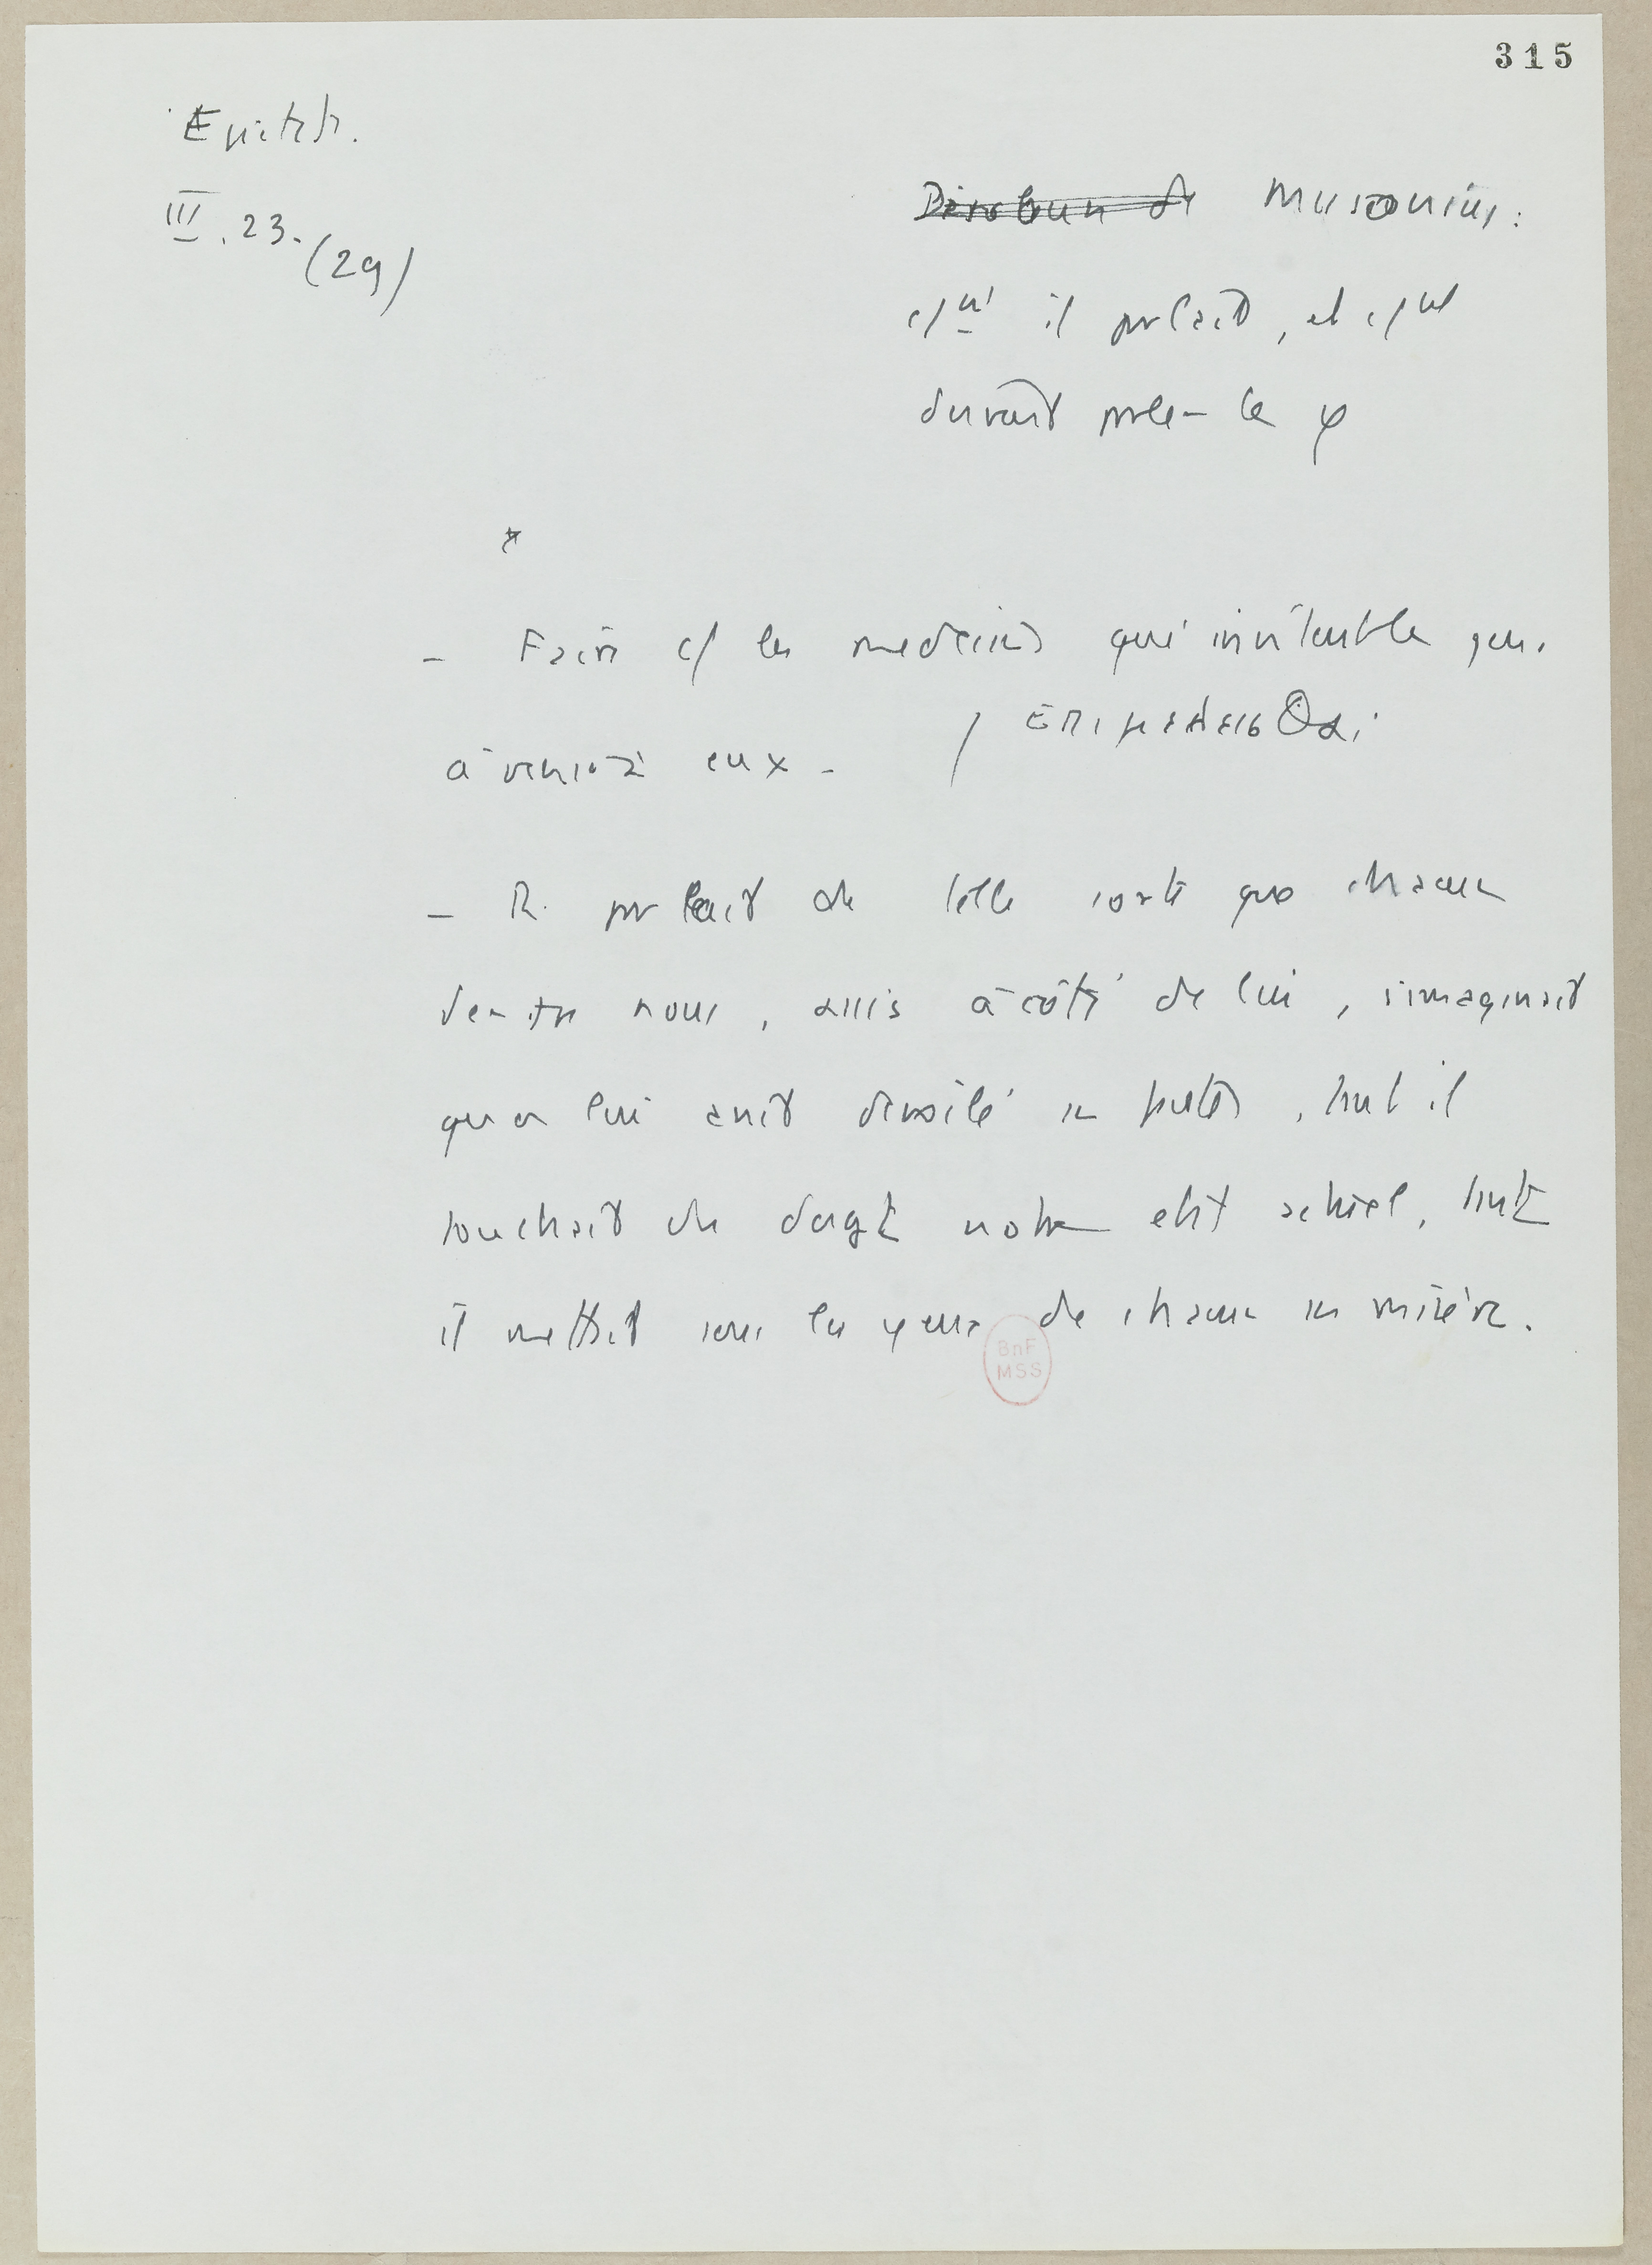 315
Epictete.
III. 23. (29)
Direction de Musonius :
c/nt il parlait, et c/nt
devrait parler le φ
*
- Faire c/ les medecins qui invitent les gens
à venir à eux - / επιμελεισθαι
- R. parlait de telle sorte que chacun
d'entre nous, assis à côté de lui, s'imaginait
qu'on lui avait dévoilé ses fautes, tant il
touchait du doigt notre etat actuel, tant
il mettait sous les yeux de chacun sa misère.
BnF
MSS